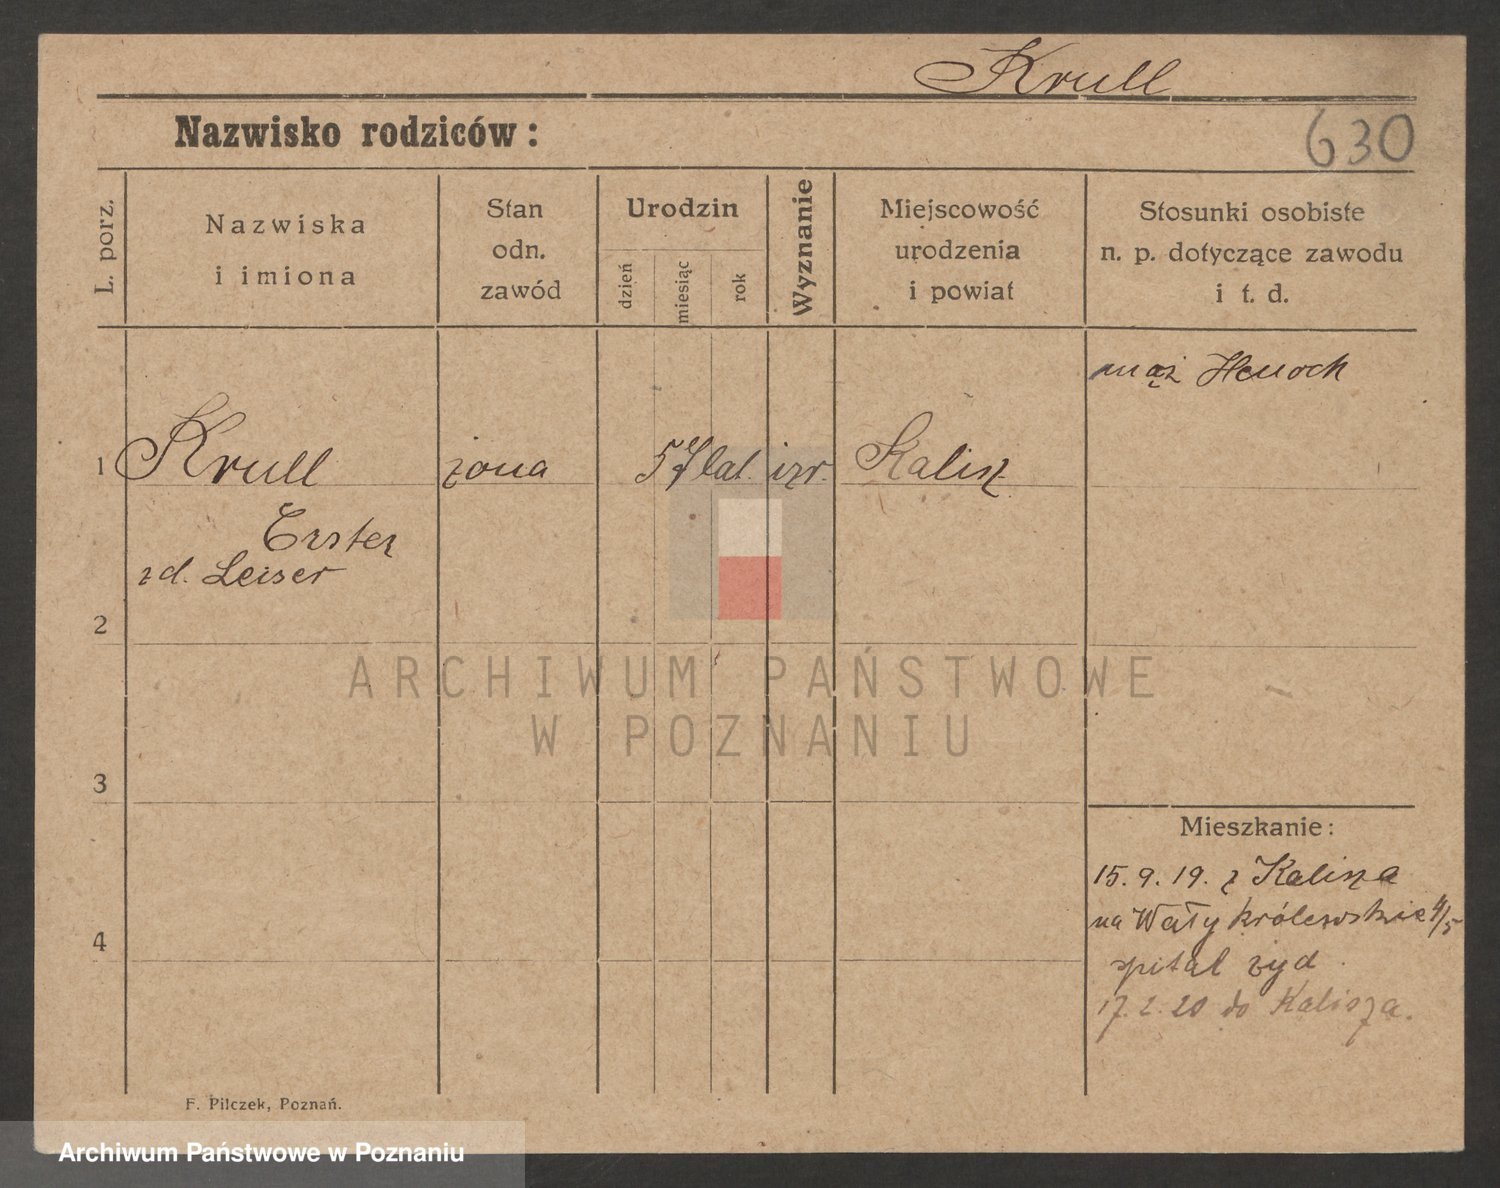 Krull
Nazwisko rodziców:
630
L. porz.
Nazwiska
i imiona
Stan
odn.
zawód
Urodzin
dzień
miesiąc
rok
Wyznanie
Miejscowość
urodzenia
i powiat
Stosunki osobiste
n. p. dotyczące zawodu
i t. d.
mąż Henoch
1 Krull żona 57 lat. izr. Kalisz
Erster
zd. Leiser
2
ARCHIWUM PAŃSTWOWE
W POZNANIU
3
Mieszkanie:
15.9.19. z Kalisza
na Wały królewskie 4/5
4
spital żyd.
17.2.20 do Kalisza.
F. Pilczek, Poznań.
Archiwum Państwowe w Poznaniu